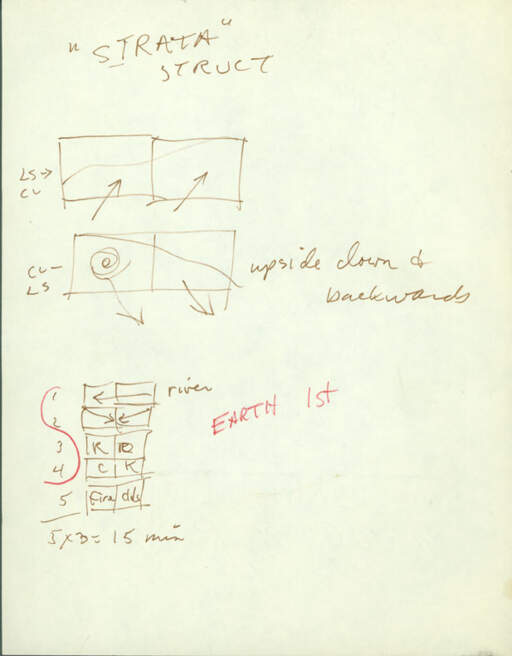 "STRATA"
STRUCT
LS→
CU
CU –
LS
upside down &
backwards
1 river
2
EARTH 1st
3 R
4 C K
5 Fire
5x3=15 min